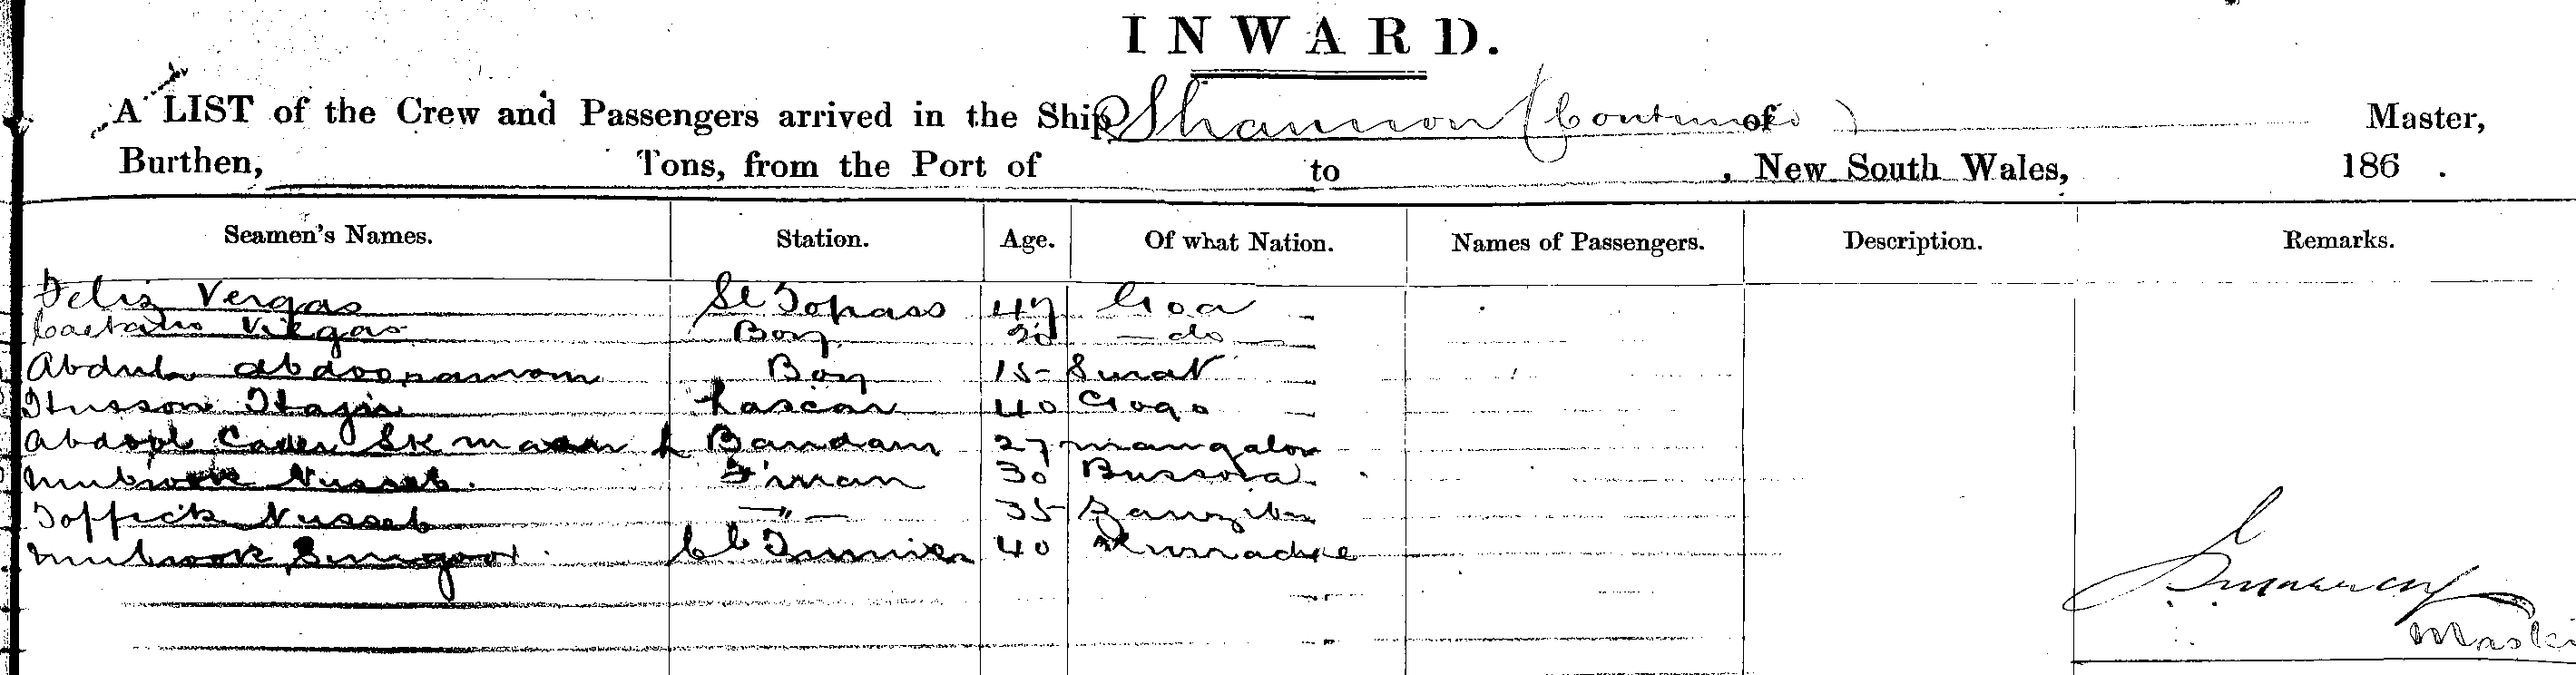 INWARD.
A LIST of the Crew and Passengers arrived in the Ship Shannon (Continued) of Master,
Burthen, Tons, from the Port of to , New South Wales, 186 .
Seamen's Names. Station. Age. Of what Nation. Names of Passengers. Description. Remarks.
Felis Vergas Topass 47 Goa
Caetano Viegas Boy 20 do
Abdul Boy 15 Surat
Husson Hajee Lascar 40 Gogo
Abdool Cader Sk Bandam 27 Mangalore
Mubrook Nusseb F'man 30 Bussora
Toffick Nusseb " 35 Zanzibar
Mubrook 40